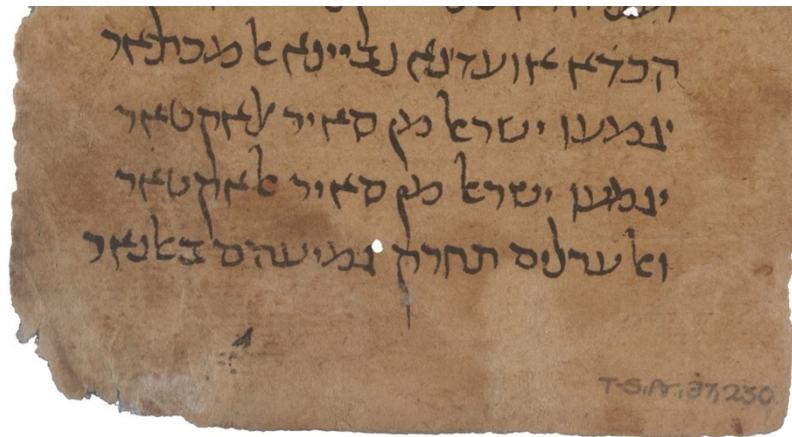 הכדא אועדנא נביינא אלמכתאר
יגמעו ישראל מן סאיר אלאקטאר
יגמעו ישראל מן סאיר אלאקטאר
ואל ערלים תחרק גמיעהם באלנאר
T-S.Ar.37,230